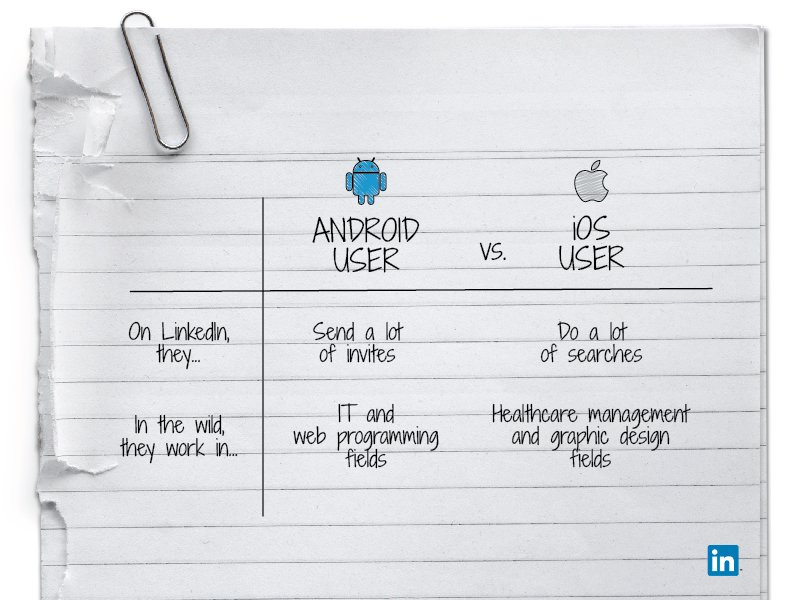 ANDROID
USER
vs.
iOS
USER
On LinkedIn,
they...
Send a lot
of invites
Do a lot
of searches
In the wild,
they work in...
IT and
web programming
fields
Healthcare management
and graphic design
fields
in